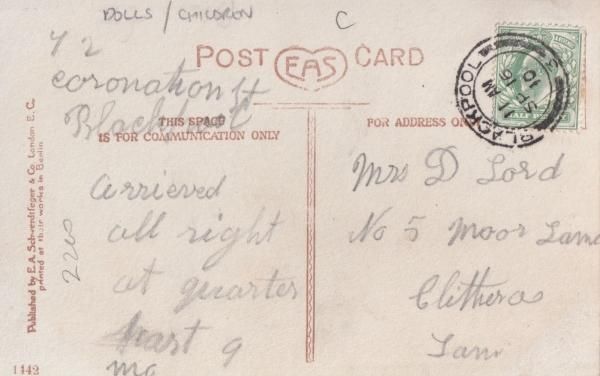 DOLLS / CHILDREN
C
POST EAS CARD
42
Coronation St
Blackpool
THIS SPACE
IS FOR COMMUNICATION ONLY
arrieved
all right
at quarter
part 9
2210
FOR ADDRESS ON
Mrs D Lord
No 5 Moor Lane
Clitheroe
Lanc
BLACKPOOL
11 AM
SP 16
10
Published by E.A. Schwerdtfeger & Co. London E.C.
printed at their works in Berlin
1442